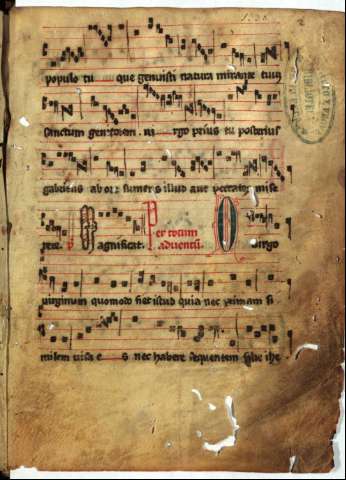 populo tu que genuisti natura mirante tuu
sanctum genitorem vi rgo prius tu posterius
gabrielis ab ore sumens illud ave peccator mise
rere. agnificat. Per totum adventum. O virgo
virginum quomodo fiet istud quia nec primam si
milem visa e s nec habere sequentem filie ihe